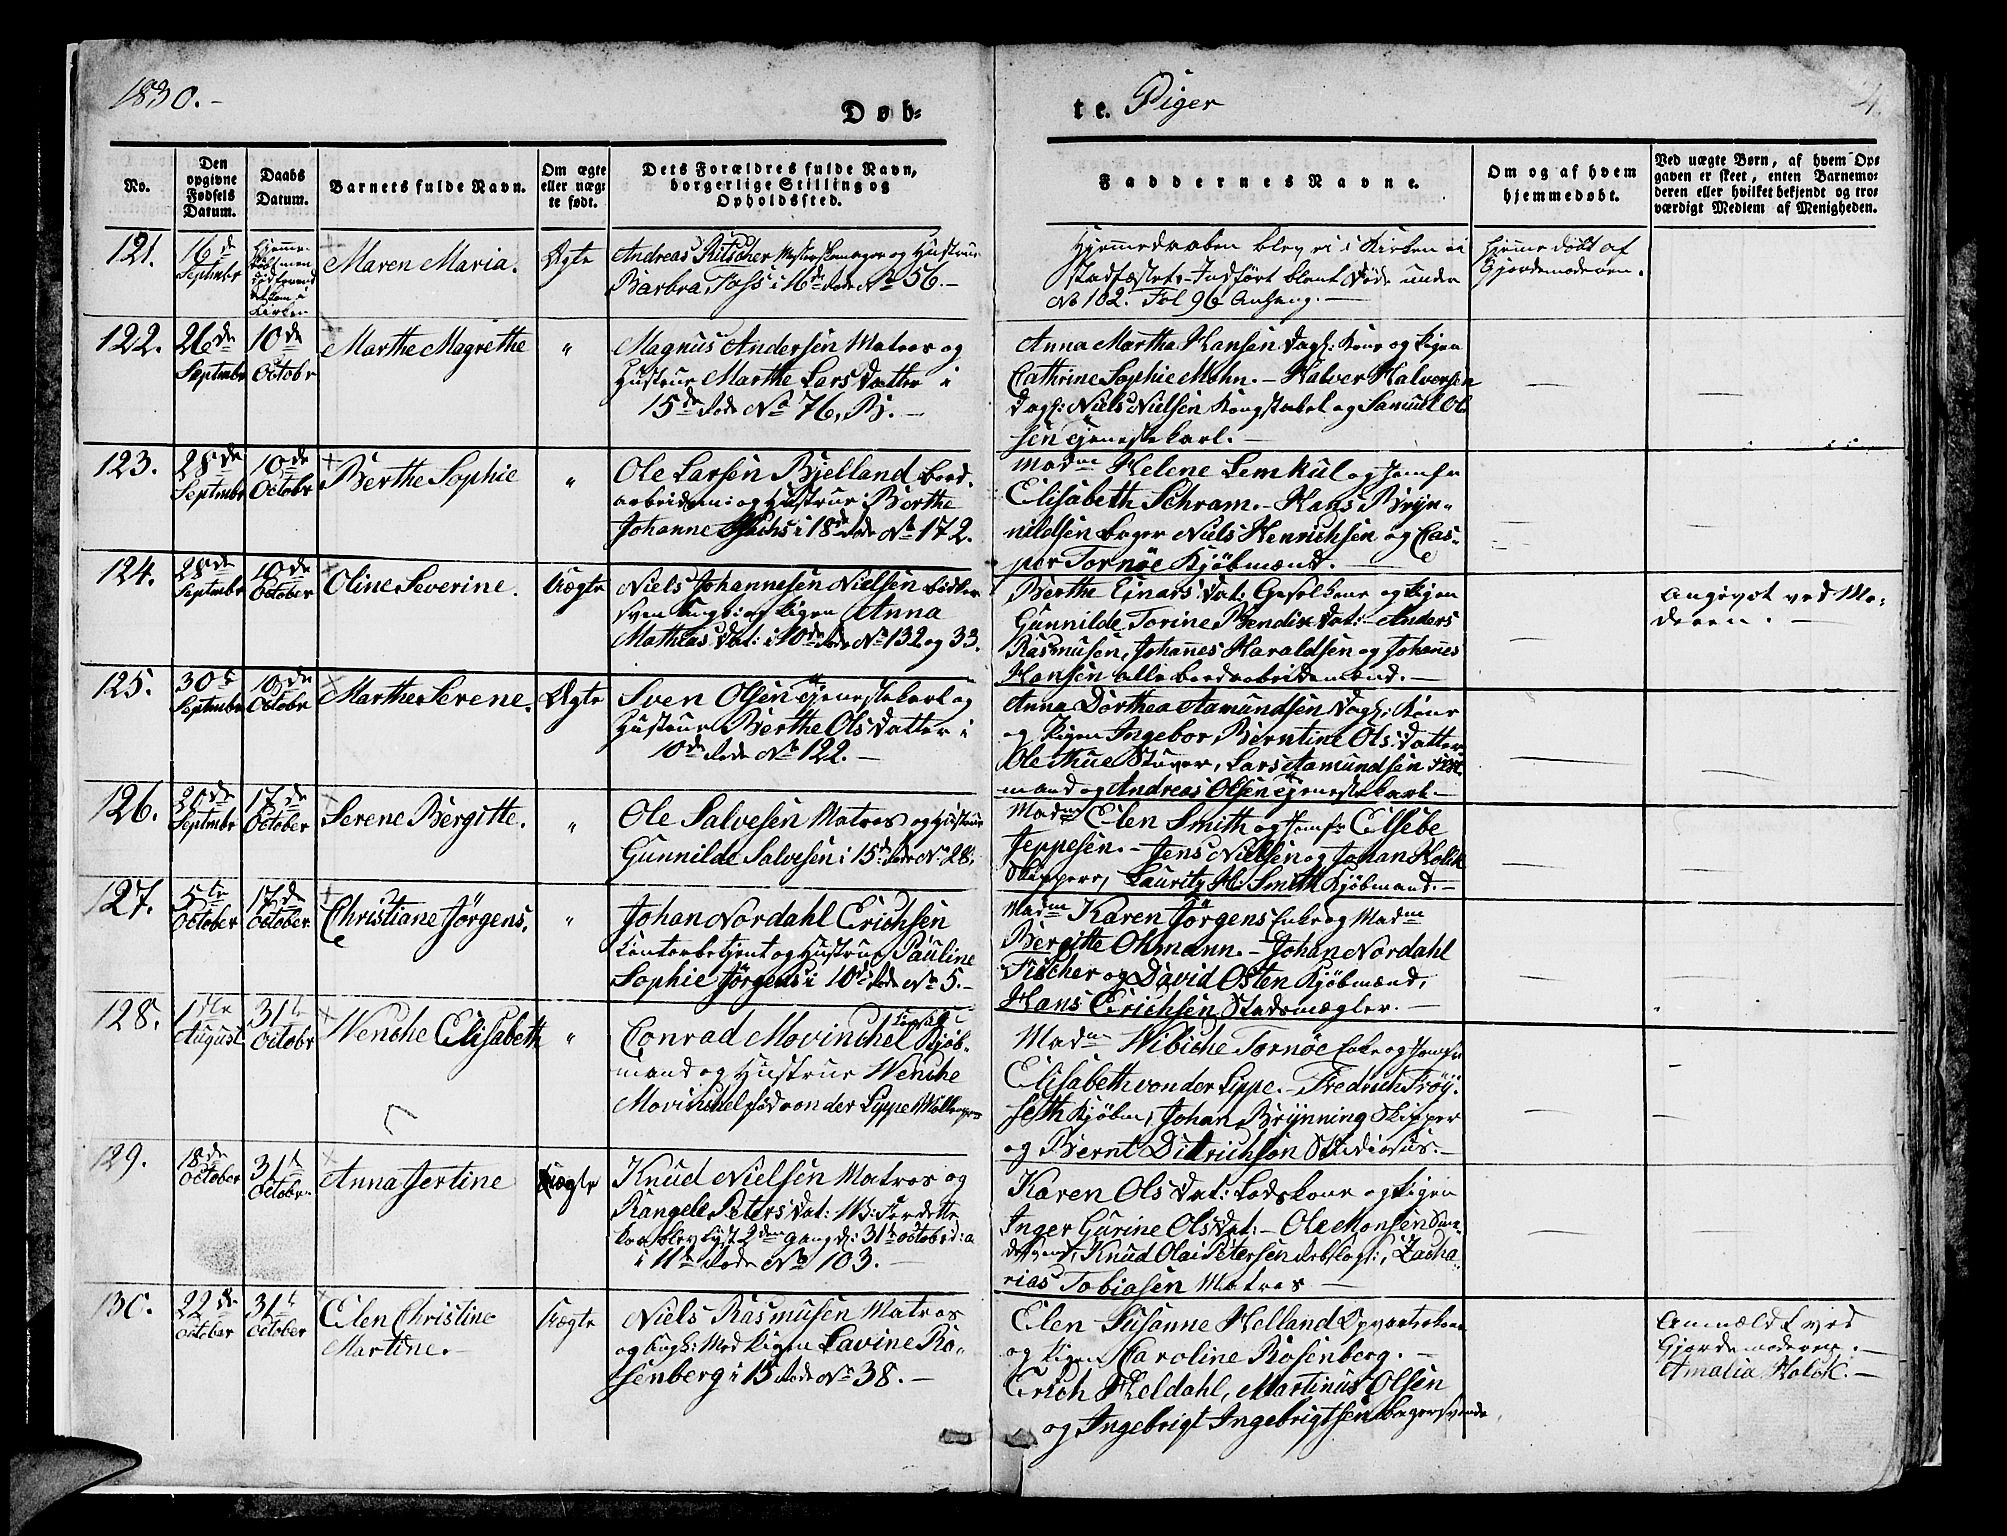 1830.-
Døb-
te. Piger
4
No.
Den opgivne Fødsels Datum.
Daabs Datum.
Barnets fulde Navn.
Om ægte eller uægte født.
Dets Forældres fulde Navn, borgerlige Stilling og Opholdssted.
Faddernes Navne.
Om og af hvem hjemmedøbt.
Ved uægte Børn, af hvem Opgaven er skeet, enten Barnemoderen eller hvilket bekjendt og troværdigt Medlem af Menigheden.
121.
16de Septmbr
Maren Maria.
Ægte
Andreas Ritscher og Hustrue
Barbra Foss i 16de Rode No 56.-
Hjemmedaaben blev ei i Kirken ei
stadfæstet. Indført blant døde under
No 102. Fol 96 Anhang.-
Hjemmedøbt af
Gjordemoderen.
122.
26de Septmbr
10de Octobr
Marthe Magrethe
"
Magnus Andersen Matros og
Hustrue Marthe Lars Datter i
15de Rode No 76, B.-
Anna Martha Hansen Dagl: Kone og Pigen
Cathrine Sophie Mohn.- Halver Halversen
Dagl: Niels Nielsen Kongstabel og Samuel Ol-
sen Tjenestekarl.-
123.
28de Septmbr
10de Octobr
Berthe Sophie
"
Ole Larsen Bjelland bord-
arbeidsm: og Hustrue Berthe
Johanne i 18de Rode No 172.
Madme Helene Lemkul og Jomfr
Elisabeth Schram.- Hans Bryn-
nildsen bager Niels Henrichsen og Cas-
per Tornöe Kjöbmænd.-
124.
28de Septmbr
10de October
Oline Severine.
Uægte
Niels Johannesen Nielsen bödker
svend Ungk: og Pigen Anna
Mathias Dat: i 10de Rode No 132 og 33.
Berthe Einars Dat: Gesel Kone og Pigen
Gunnilde Torine Bendix Dat:- Anders
Rasmusen, Johannes Haraldsen og Johannes
Hansen alle bordarbeidsmænd.-
Angivet ved Mo-
deren.-
125.
30te Septmbr
10de Octobr
Marthe Serene.
Ægte
Sven Olsen Tjenestekarl og
Hustrue Berthe Ols Datter i
10de Rode No 122.-
Anna Dorthea Aamundsen Dagl: Kone
og Pigen Ingebor Berntine Ols: Datter
Ole Thue Stuver, Lars Aamundsen
mand og Andreas Olsen Tjenestekarl.-
126.
Septmbr
17de October
Serene Bergitte.
"
Ole Salvesen Matros og Hustrue
Gunnilde Salvesen i 15de Rode No 28.
Madme Elen Smith og Jomfr Elsebe
Jeppesen.- Jens Nielsen og Johan Holck
Skippere, Lauritz H: Smith Kjöbmand.-
127.
5te October
17de October
Christiane Jörgens.
"
Johan Nordahl Erichsen
Contorbetjent og Hustrue Pauline
Sophie Jörgens i 10de Rode No 5.-
Madme Karen Jörgens Enke og Madme
Bergitte Ohmann.- Johan Nordahl
Fischer og David Osten Kjöbmænd,
Hans Erichsen Stadsmægler.-
128.
1ste August
31te Octobr
Wenche Elisabeth
"
Conrad Mowinchel Kjöb-
mand og Hustrue Wenche
Mowinchel föd von der Lippe
Madme Wibiche Tornöe Enke og Jomfr
Elisabeth von der Lippe.- Fredrich Tröy
seth Kjöbm, Johan Brynning Skipper
og Bernt Didrichsen Studiosus.-
129.
18de October
31te Octobr.
Anna Jertine
Uægte
Knud Nielsen Matros og
Rangele Peters Dat: NB: For dette
Par blev lyst 2den gang d: 31te October d: a
i 11te Rode No 103.-
Karen Ols Dat: Lodskone og Pigen
Inger Gurine Ols Dat:- Ole Monsen
Knud Olai Petersen Zacha-
rias Tobiasen Matros
130.
22de October
31te October
Elen Christine
Martine.-
Uægte
Niels Rasmusen Matros
og Ungk: Med Pigen Lavine Ro-
senberg i 15 Rode No 38.-
Elen Susanne Helland Opvarterkone
og Pigen Caroline Rosenberg.-
Erich Heldahl, Martinus Olsen
og Ingebrigt Ingebrigtsen bagersvende
Anmældt ved
Gjordemoderen.-
Amalia Holck.-